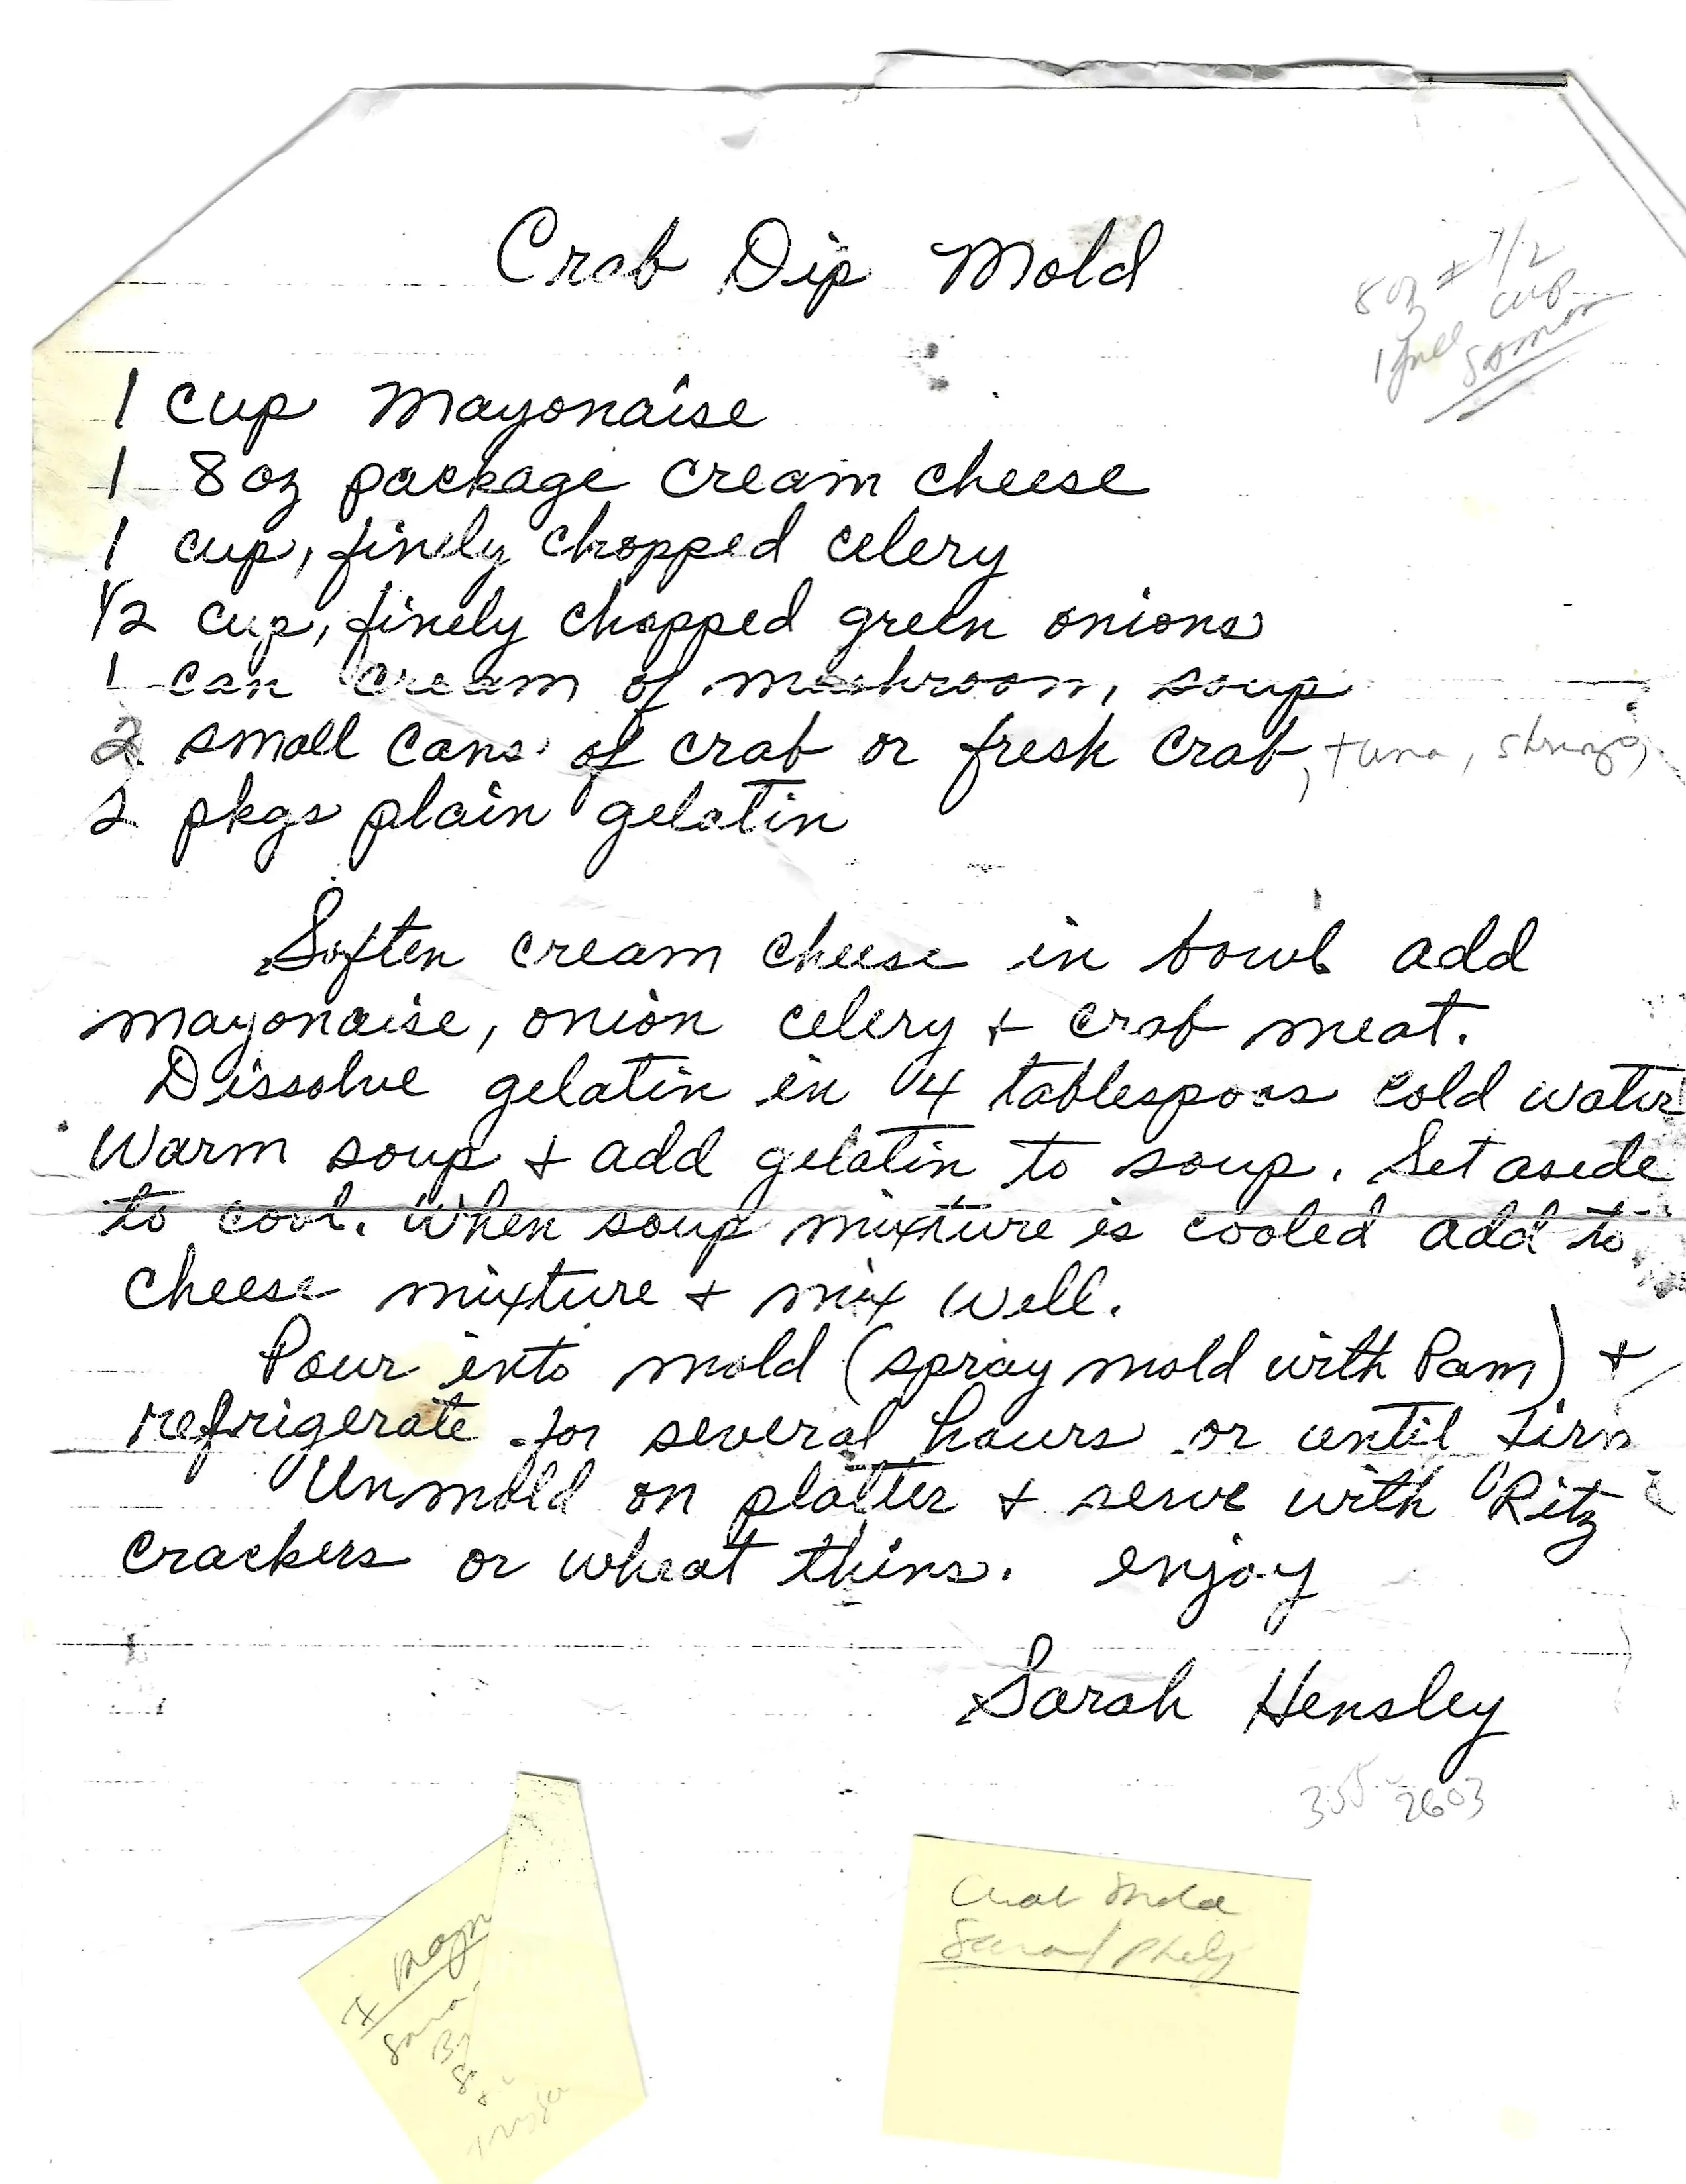 Crab Dip Mold
8oz 1/2
cup
1
1 cup mayonaise
1 8oz package cream cheese
1 cup, finely chopped celery
1/2 cup, finely chopped green onions
1 can cream of mushroom, soup
2 small cans of crab or fresh crab, tuna,
2 pkgs plain gelatin
Soften cream cheese in bowl add
mayonaise, onion celery + crab meat.
Dissolve gelatin in 4 tablespoons cold water
Warm soup + add gelatin to soup. Set aside
to cool. When soup mixture is cooled add to
cheese mixture + mix well.
Pour into mold (spray mold with Pam) +
refrigerate for several hours or until firm
Unmold on platter + serve with Ritz
crackers or wheat thins. enjoy
Sarah Hensley
355-2603
Crab Mold